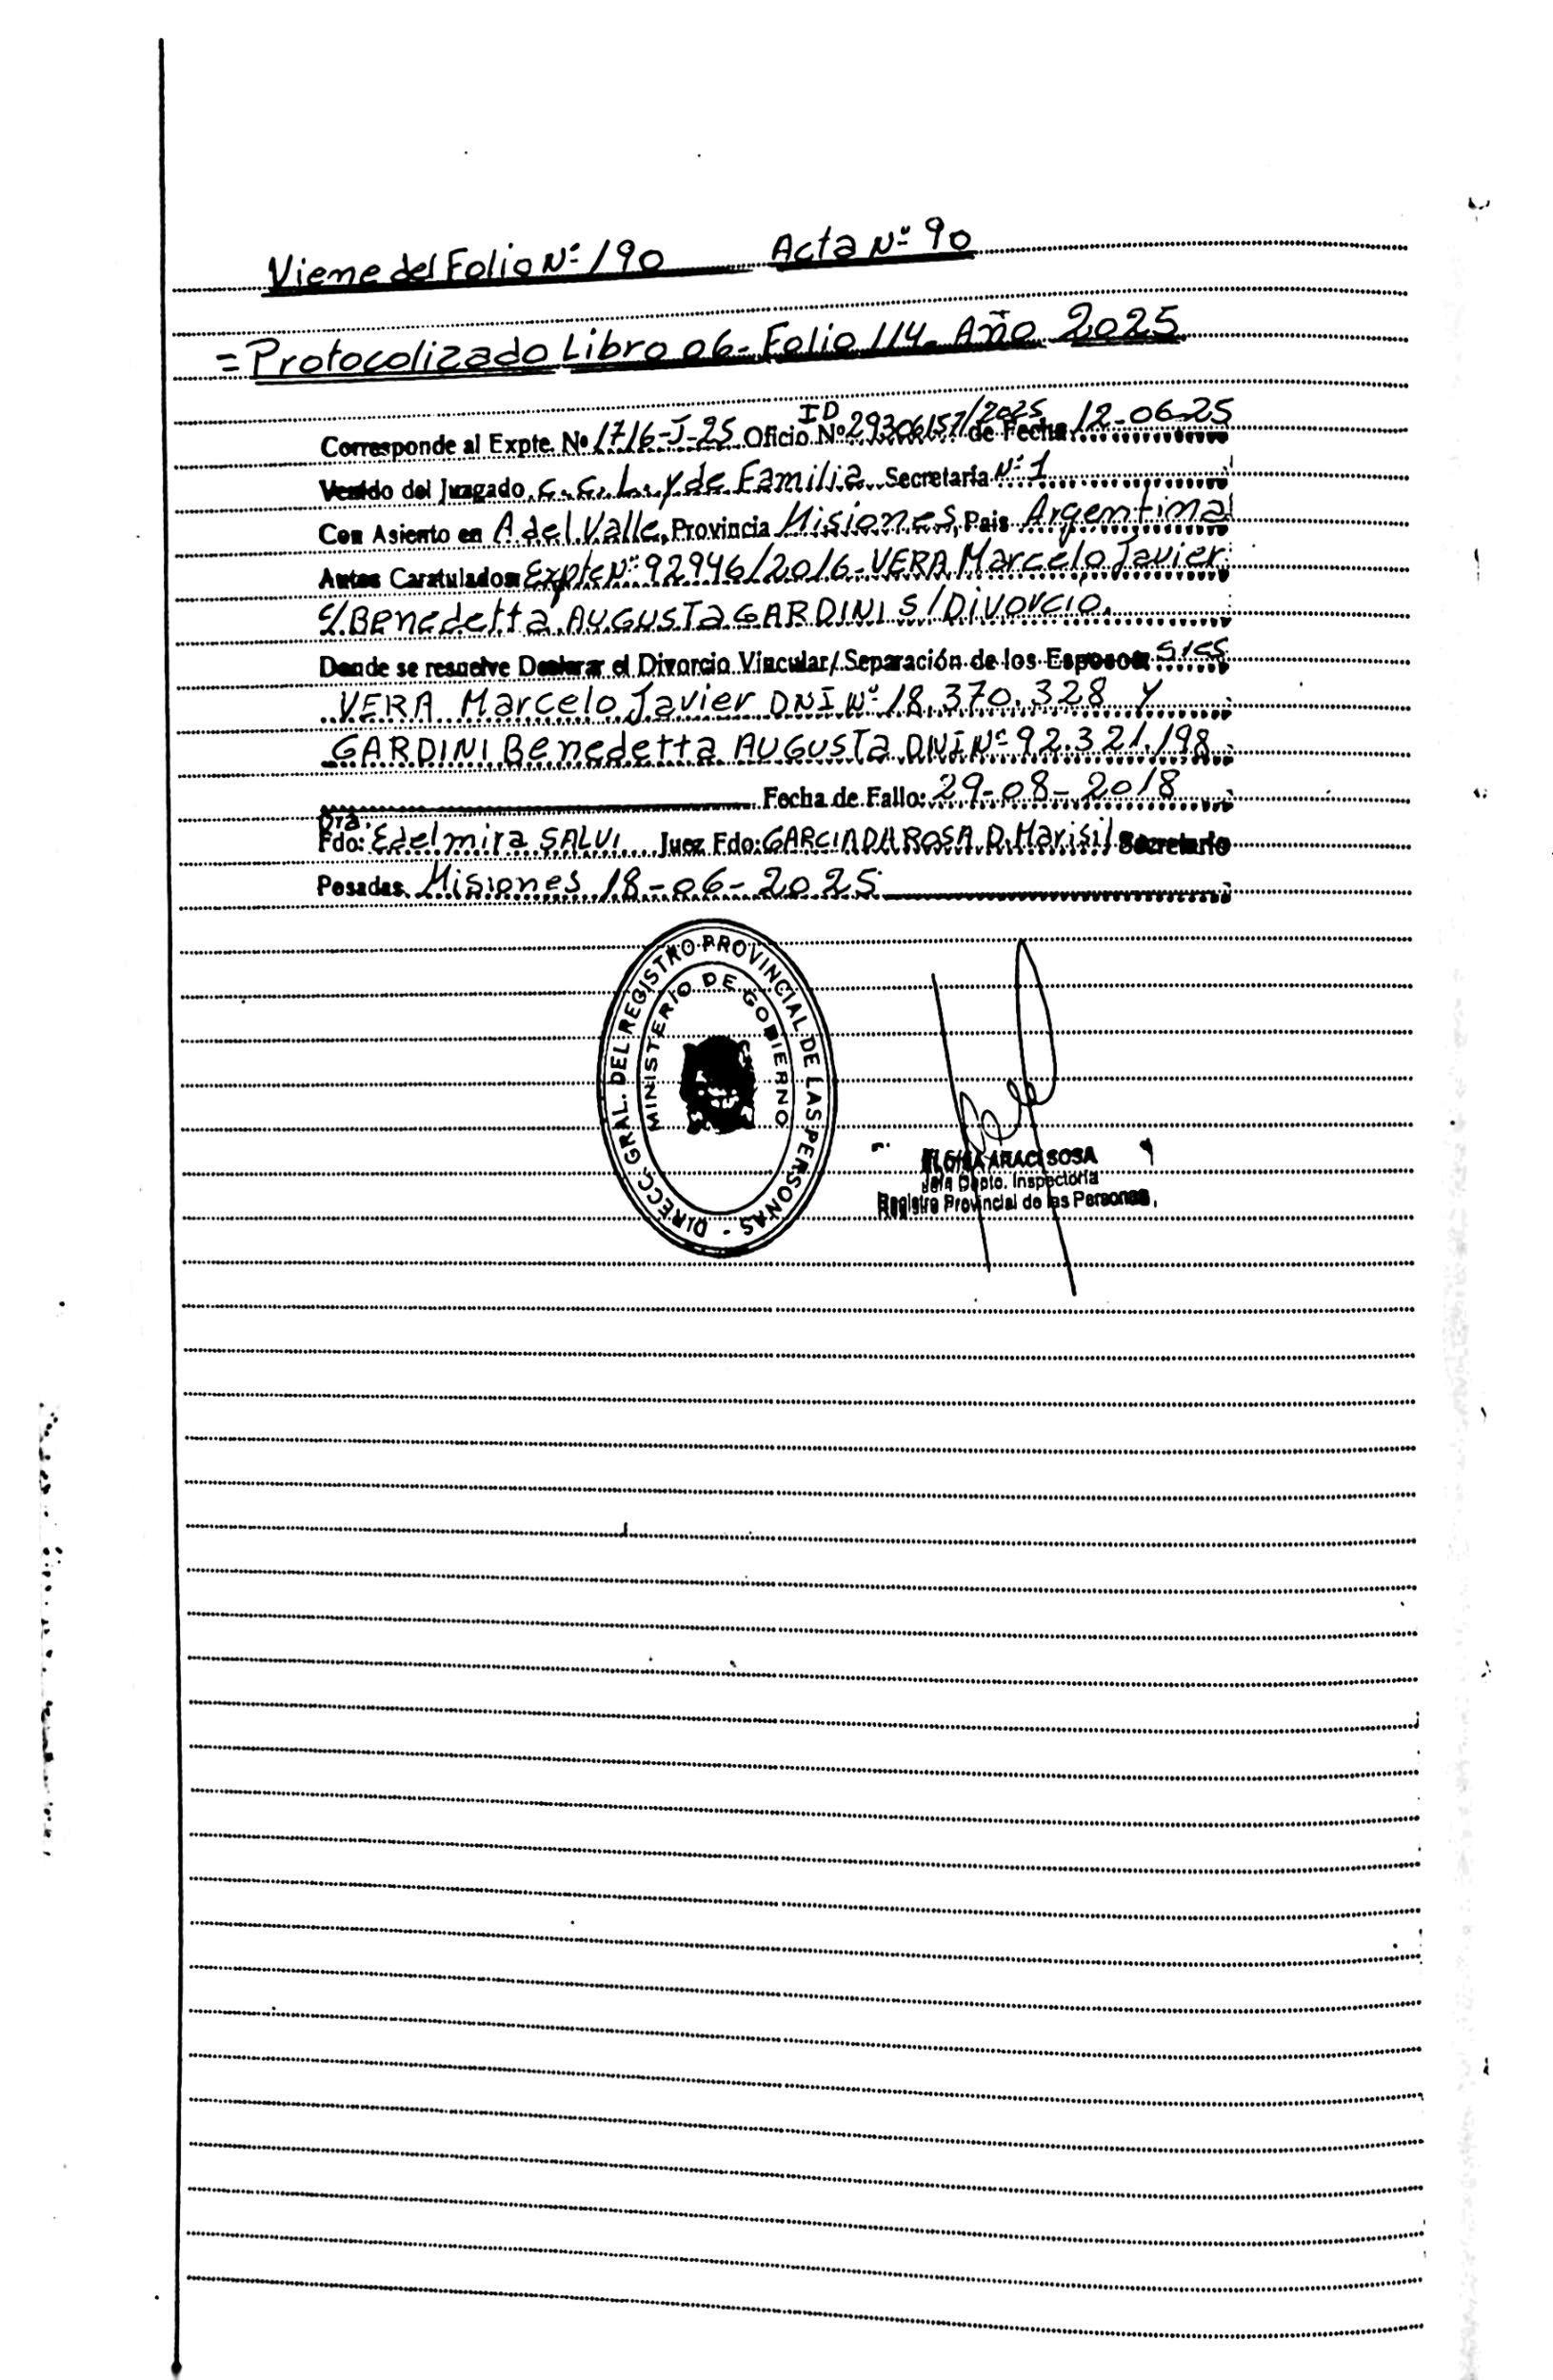 Viene del Folio Nº 190 Acta Nº 90
= Protocolizado Libro 06- Folio 114- Año 2025
Corresponde al Expte. Nº 1716-J-25 Oficio ID Nº 29306157/2025 de Fecha 12-06-25
Venido del Juzgado C. C. L. y de Familia Secretaría Nº 1
Con Asiento en A del Valle, Provincia Misiones, Pais Argentina
Autos Caratulados Expte Nº 92946/2016- VERA Marcelo Javier
c/ Benedetta AUGUSTA GARDINI S/ Divorcio.
Donde se resuelve Declarar el Divorcio Vincular/ Separación de los Esposos
VERA Marcelo Javier DNI Nº 18.370.328 y
GARDINI Benedetta AUGUSTA DNI Nº 92.321.198
Fecha de Fallo: 29-08-2018
Dra.
Fdo: Edelmira SALVI Juez Fdo: GARCIA DA ROSA D. Marisil Secretario
Posadas, Misiones 18-06-2025
DIRECC. GRAL. DEL REGISTRO PROVINCIAL DE LAS PERSONAS -
MINISTERIO DE GOBIERNO
ARACI SOSA
Jefa Dpto. Inspectoría
Registro Provincial de las Personas